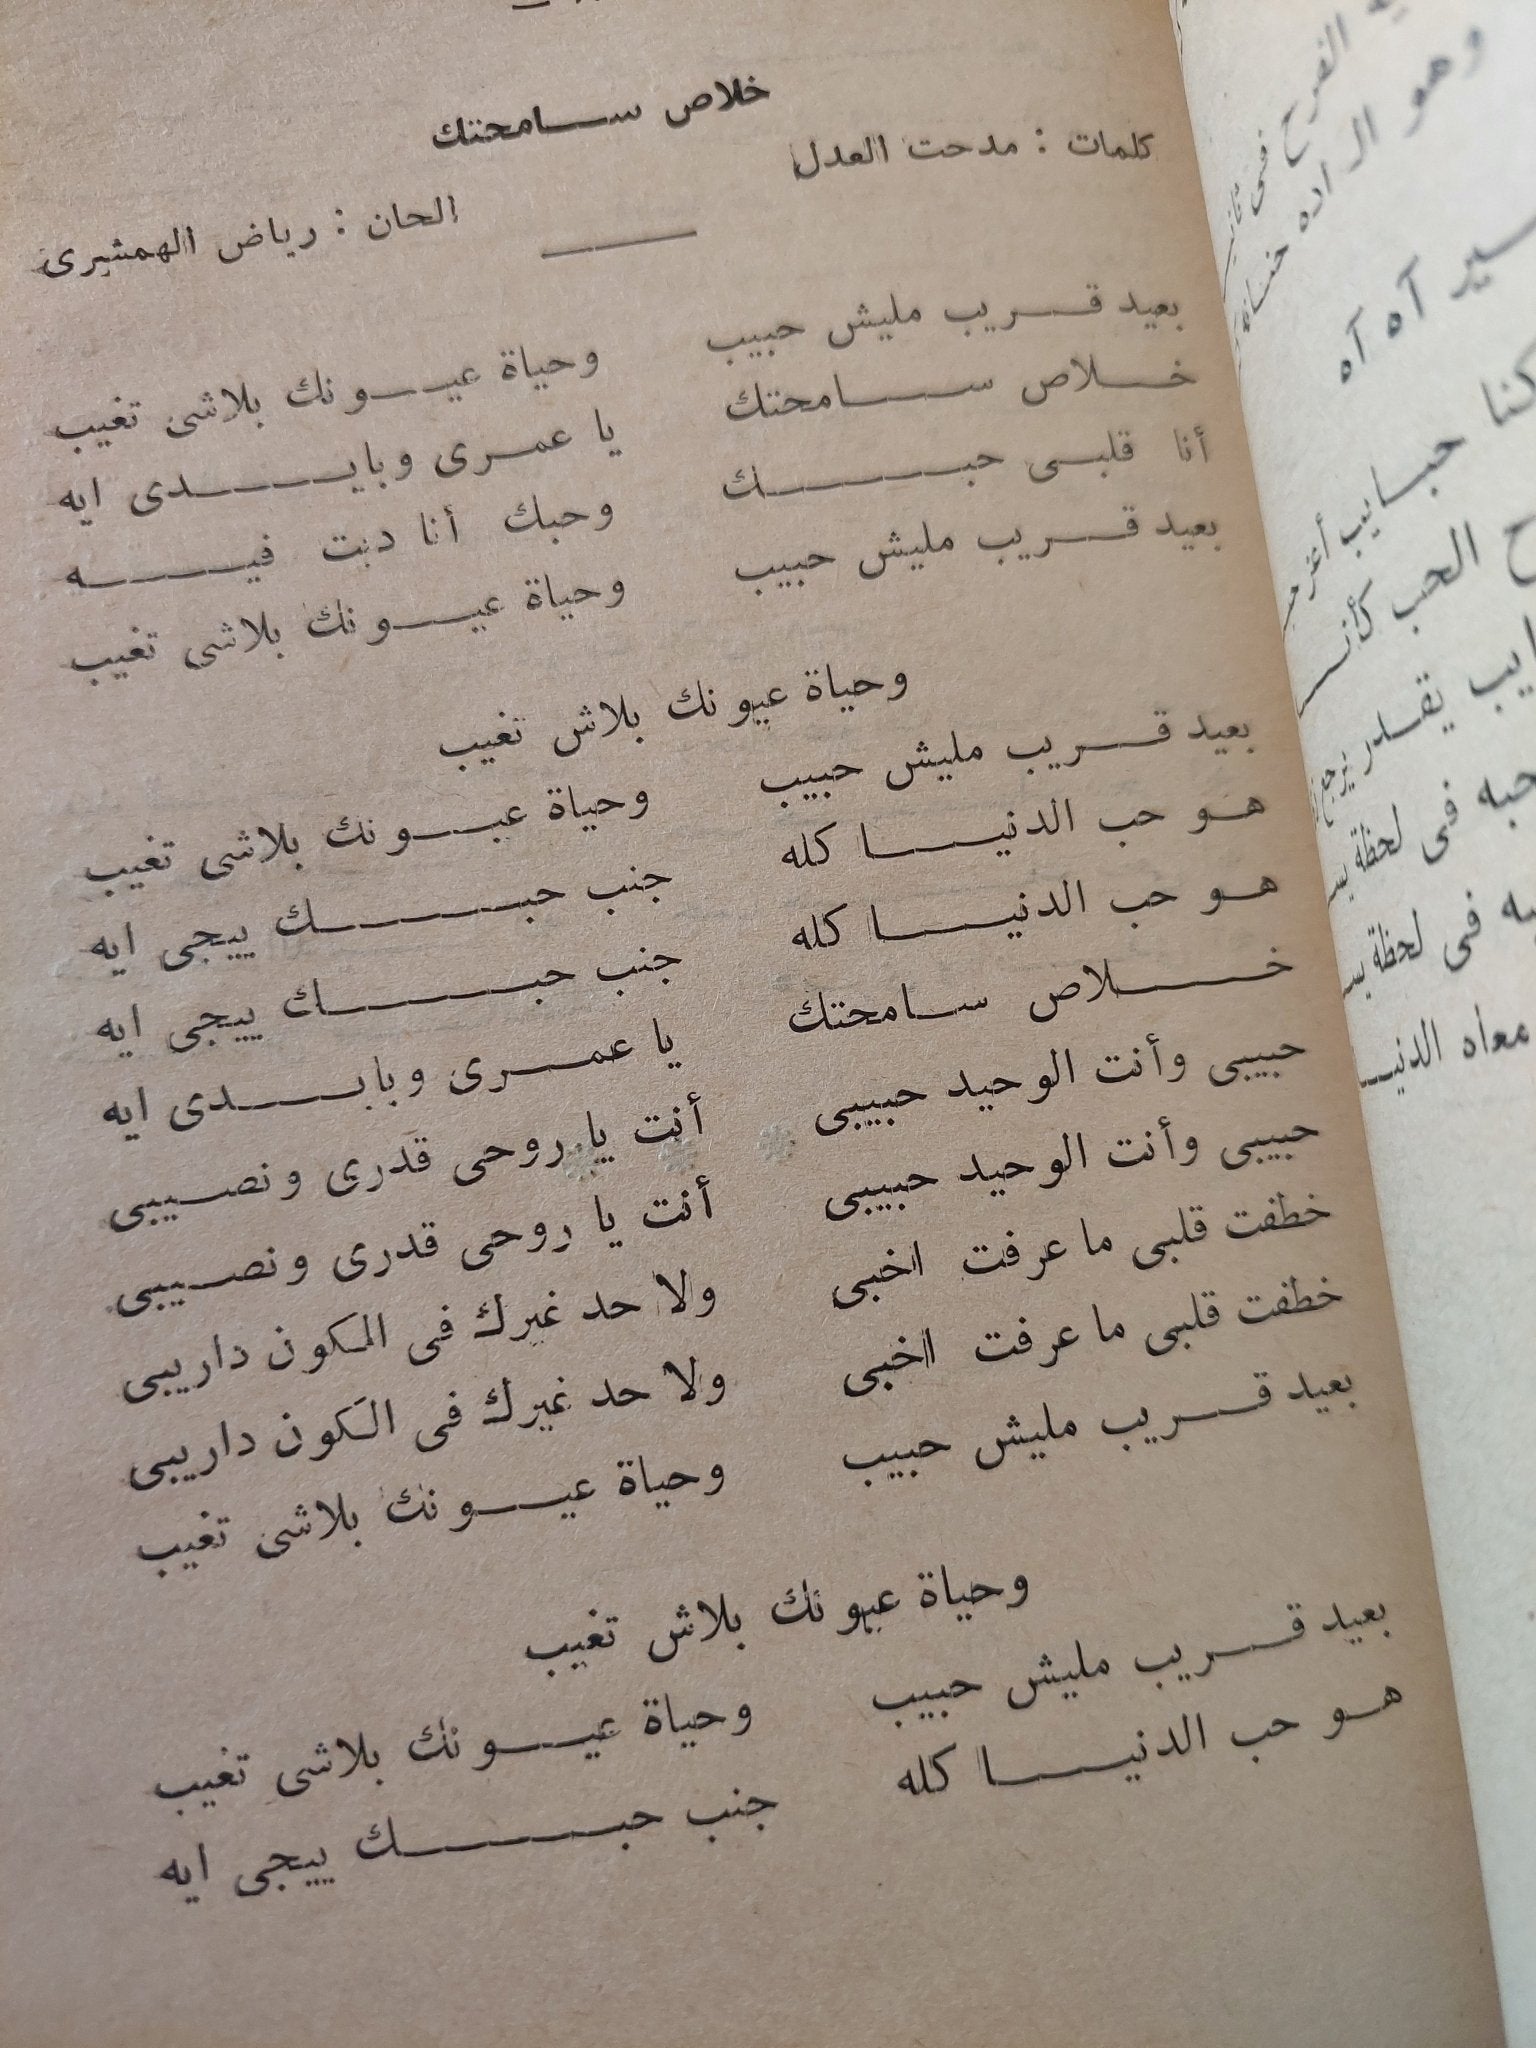 خلاص سامحتك
كلمات : مدحت العدل
الحان : رياض الهمشيرى
بعيد قريب مليش حبيب وحياة عيونك بلاشى تغيب
خلاص سامحتك يا عمرى وبايدى ايه
أنا قلبى حبك وحبك أنا دبت فيه
بعيد قريب مليش حبيب وحياة عيونك بلاشى تغيب
وحياة عيونك بلاش تغيب
بعيد قريب مليش حبيب وحياة عيونك بلاشى تغيب
هو حب الدنيا كله جنب حبك ييجى ايه
هو حب الدنيا كله جنب حبك ييجى ايه
خلاص سامحتك يا عمرى وبابدى ايه
حبيبى وأنت الوحيد حبيبى أنت يا روحى قدرى ونصيبى
حبيبى وأنت الوحيد حبيبى أنت يا روحى قدرى ونصيبى
خطفت قلبى ما عرفت اخبى ولا حد غيرك فى الكون داريبى
خطفت قلبى ما عرفت اخبى ولا حد غيرك فى الكون داريبى
بعيد قريب مليش حبيب وحياة عيونك بلاشى تغيب
وحياة عيونك بلاش تغيب
بعيد قريب مليش حبيب وحياة عيونك بلاشى تغيب
هو حب الدنيا كله جنب حبك ييجى ايه
الفرح فى
وهو
آه آه
كنا حبايب
الحب
يقدر
حبه فى لحظة
فى لحظة
معاه